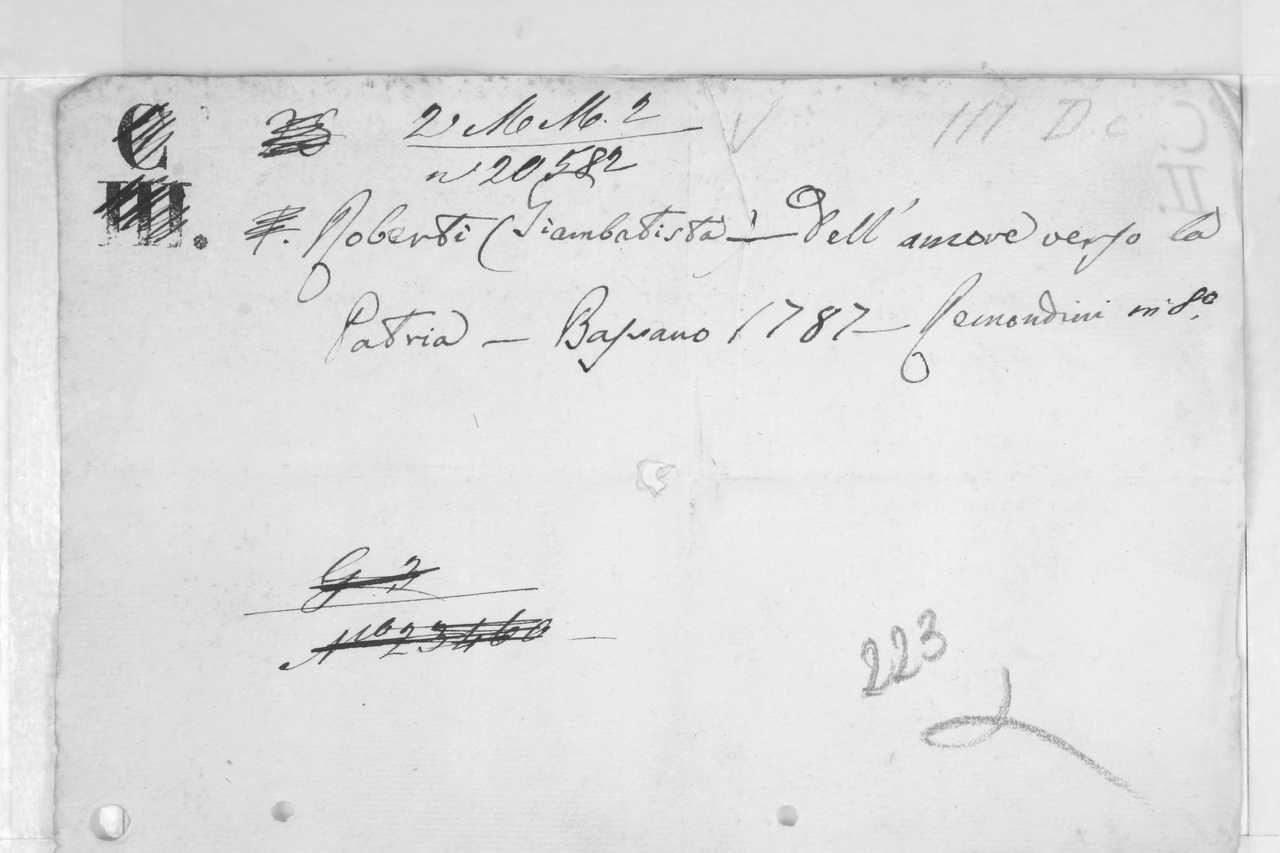 C
III.
2 MM. 2
n 20582
III D c
Roberti (Giambatista) — Dell' amore verso la
Patria — Bassano 1787 — Remondini in 8.º
G 3
Nº 23460
223